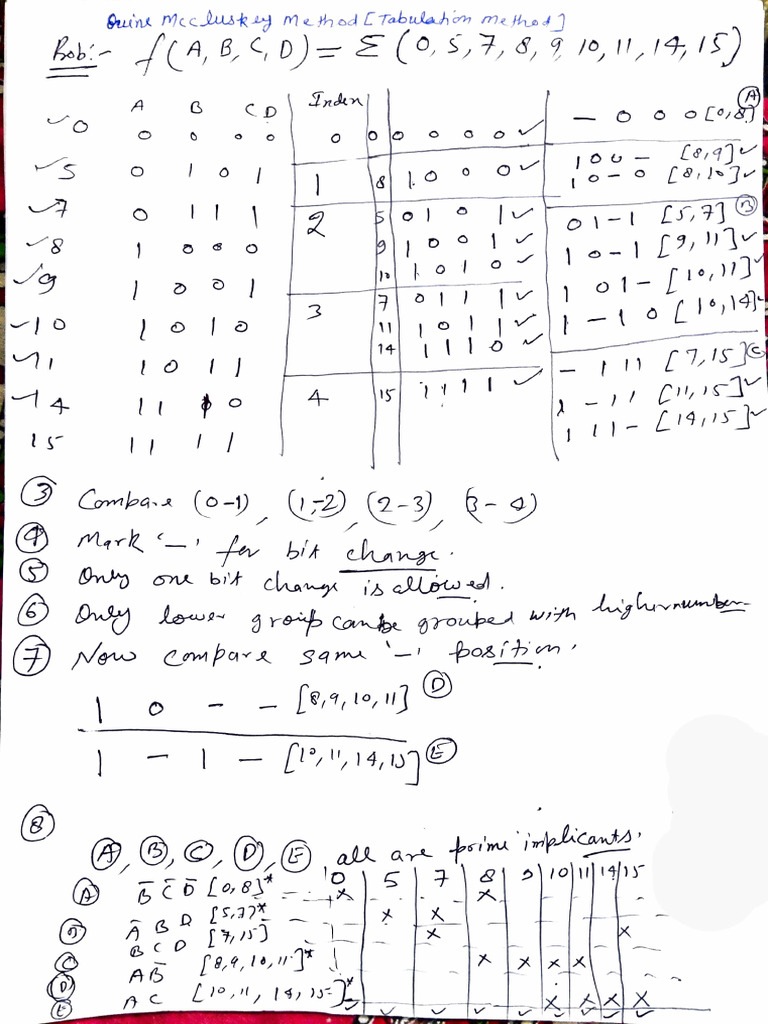 Quine McCluskey Method [Tabulation method]
Prob:- f(A, B, C, D) = Σ (0, 5, 7, 8, 9, 10, 11, 14, 15)
A B C D Index
✓0 0 0 0 0 0 0 0 0 0 0 ✓ — 0 0 0 [0, 8] Ⓐ
✓5 0 1 0 1 1 8 1 0 0 0 ✓ 1 0 0 — [8, 9] ✓
1 0 — 0 [8, 10] ✓
✓7 0 1 1 1 2 5 0 1 0 1 ✓ 0 1 — 1 [5, 7] Ⓑ
✓8 1 0 0 0 9 1 0 0 1 ✓ 1 0 — 1 [9, 11] ✓
✓9 1 0 0 1 10 1 0 1 0 ✓ 1 0 1 — [10, 11] ✓
✓10 1 0 1 0 3 7 0 1 1 1 ✓ 1 — 1 0 [10, 14] ✓
✓11 1 0 1 1 11 1 0 1 1 ✓ — 1 1 1 [7, 15] Ⓒ
14 1 1 1 0 ✓
✓14 1 1 1 0 4 15 1 1 1 1 ✓ 1 — 1 1 [11, 15] ✓
15 1 1 1 1 1 1 1 — [14, 15] ✓
③ Compare (0-1), (1,-2), (2-3), (3-4)
④ Mark '—' for bit change.
⑤ Only one bit change is allowed.
⑥ Only lower group can be grouped with higher number
⑦ Now compare same '—' position.
1 0 — — [8, 9, 10, 11] Ⓓ
1 — 1 — [10, 11, 14, 15] Ⓔ
⑧
Ⓐ, Ⓑ, Ⓒ, Ⓓ, Ⓔ all are prime implicants.
0 5 7 8 9 10 11 14 15
Ⓐ B̅ C̅ D̅ [0, 8]* x x
Ⓑ A̅ B D [5, 7]* x x
Ⓒ B C D [7, 15] x x
Ⓓ A B̅ [8, 9, 10, 11]* x x x x
Ⓔ A C [10, 11, 14, 15]* x x x x
✓ ✓ ✓ ✓ ✓ ✓ ✓ ✓ ✓